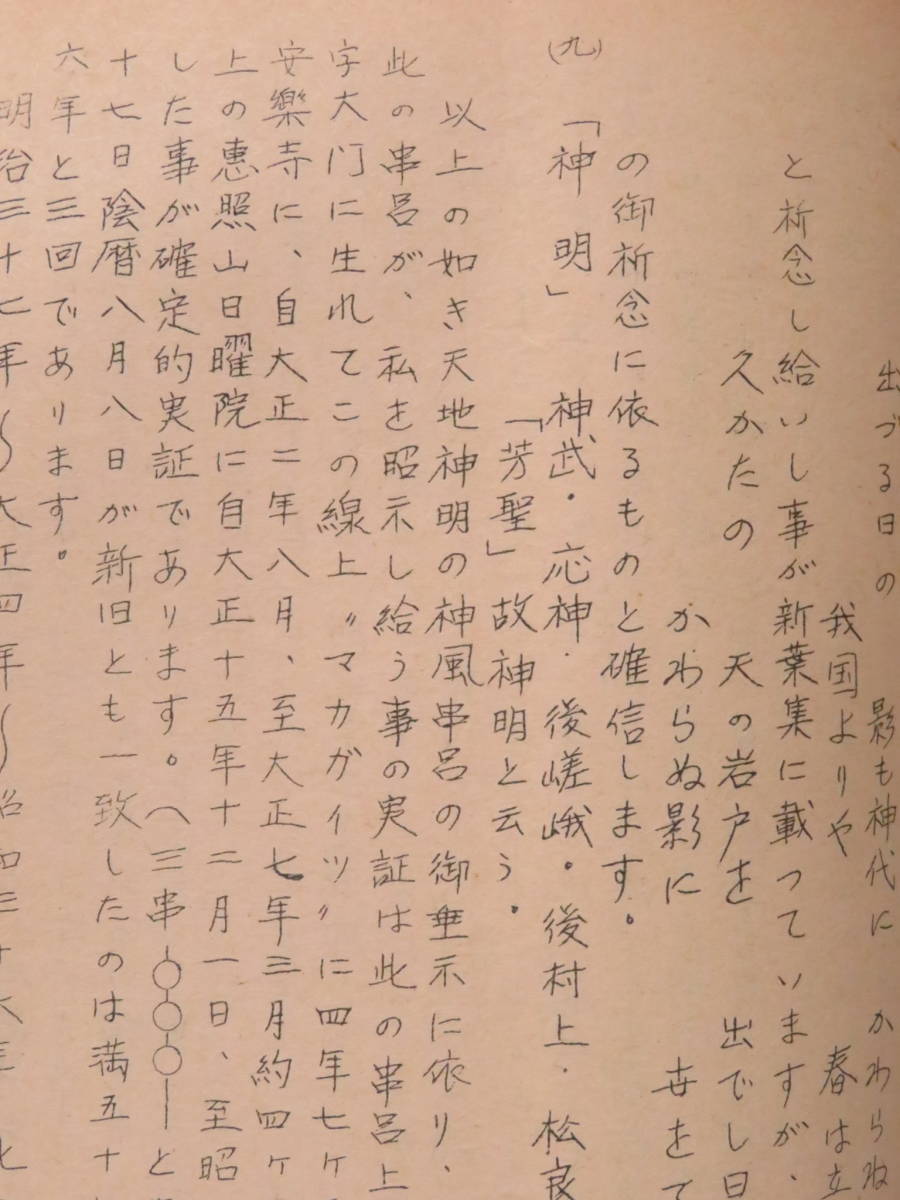 出づる日の　影も神代に　かわらね
我国よりや　春は立
と祈念し給いし事が新葉集に載っていますが、
久かたの　天の岩戸を　出でし日
かわらぬ影に　世をて
の御祈念に依るものと確信します。
(九)　「神　明」　神武・応神・後嵯峨・後村上・松良
「芳聖」故神明と云う。
以上の如き天地神明の神風串呂の御垂示に依り、
此の串呂が、私を昭示し給う事の実証は此の串呂上
字大门に生れてこの線上〃マカガイツ〃に四年七ヶ
安樂寺に、自大正二年八月、至大正七年三月約四ヶ
上の恵照山日曜院に自大正十五年十二月一日、至昭
した事が確定的実証であります。へ三串─○○○─と
十七日陰暦八月八日が新旧とも一致したのは満五十
六年と三回であります。
明治三十七年〜大正四年〜昭和三十